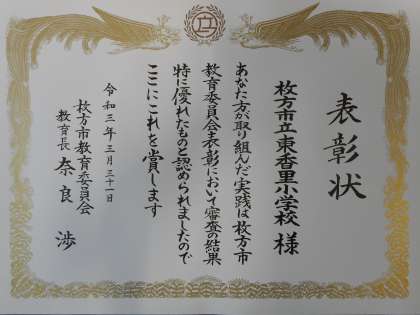 表彰状
枚方市立東香里小学校 様
あなた方が取り組んだ実践は枚方市
教育委員会表彰において審査の結果
特に優れたものと認められましたので
ここにこれを賞します
令和三年三月三十一日
枚方市教育委員会
教育長 奈良 渉